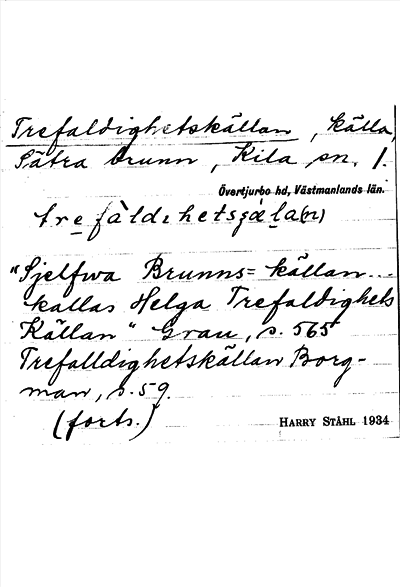 Trefaldighetskällan, källa,
Sätra brunn, Kila sn. 1.
Övertjurbo hd, Västmanlands län.
trefàldehetsʒä̀la(n)
"Sjelfwa Brunns=källan...
kallas Helga Trefaldighets
Källan" Grau, s. 565
Trefalldighetskällan Borg-
man, s. 59.
(forts.)
HARRY STÅHL 1934